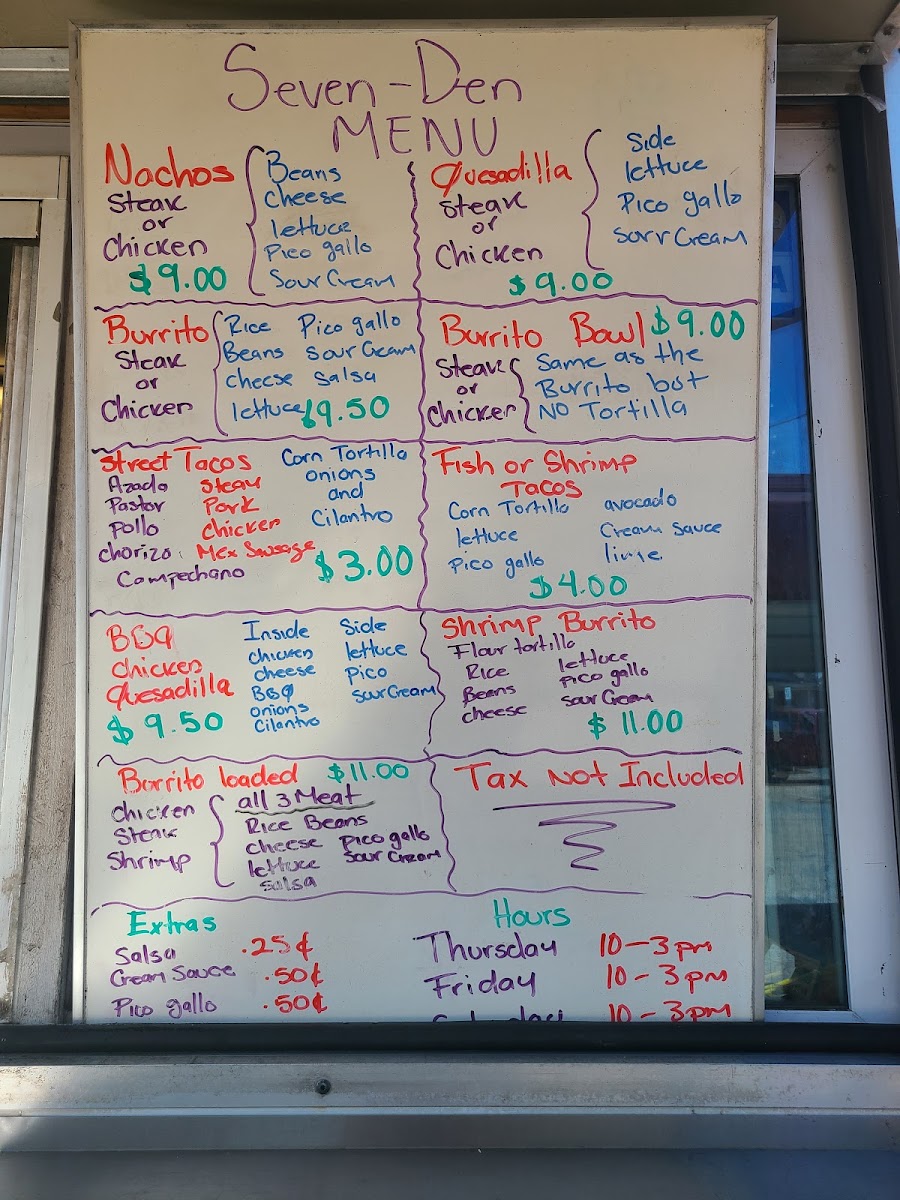 Seven-Den
MENU
Nachos
Steak
or
Chicken
$9.00
Beans
cheese
lettuce
Pico gallo
Sour Cream
Quesadilla
steak
or
Chicken
$9.00
Side
lettuce
Pico gallo
sour Cream
Burrito
Steak
or
Chicken
Rice Pico gallo
Beans sour Cream
cheese salsa
lettuce $9.50
Burrito Bowl $9.00
Steak
or
Chicken
Same as the
Burrito but
NO Tortilla
Street Tacos
Azada Steak
Pastor Pork
pollo chicken
chorizo: Mex Sausage
Campechano
Corn Tortilla
onions
and
Cilantro
$3.00
Fish or Shrimp
TACOS
Corn Tortilla avocado
lettuce Cream Sauce
Pico gallo lime
$4.00
BBQ
chicken
Quesadilla
$9.50
Inside
chicken
cheese
BBQ
onions
Cilantro
Side
lettuce
Pico
sour Cream
Shrimp Burrito
Flour tortilla
Rice lettuce
Beans pico gallo
cheese sour Cream
$11.00
Burrito loaded $11.00
chicken
Steak
Shrimp
all 3 Meat
Rice Beans
cheese pico gallo
lettuce sour Cream
salsa
Tax Not Included
Extras
Salsa .25¢
Cream Sauce .50¢
Pico gallo .50¢
Hours
Thursday 10-3pm
Friday 10-3pm
Saturday 10-3pm